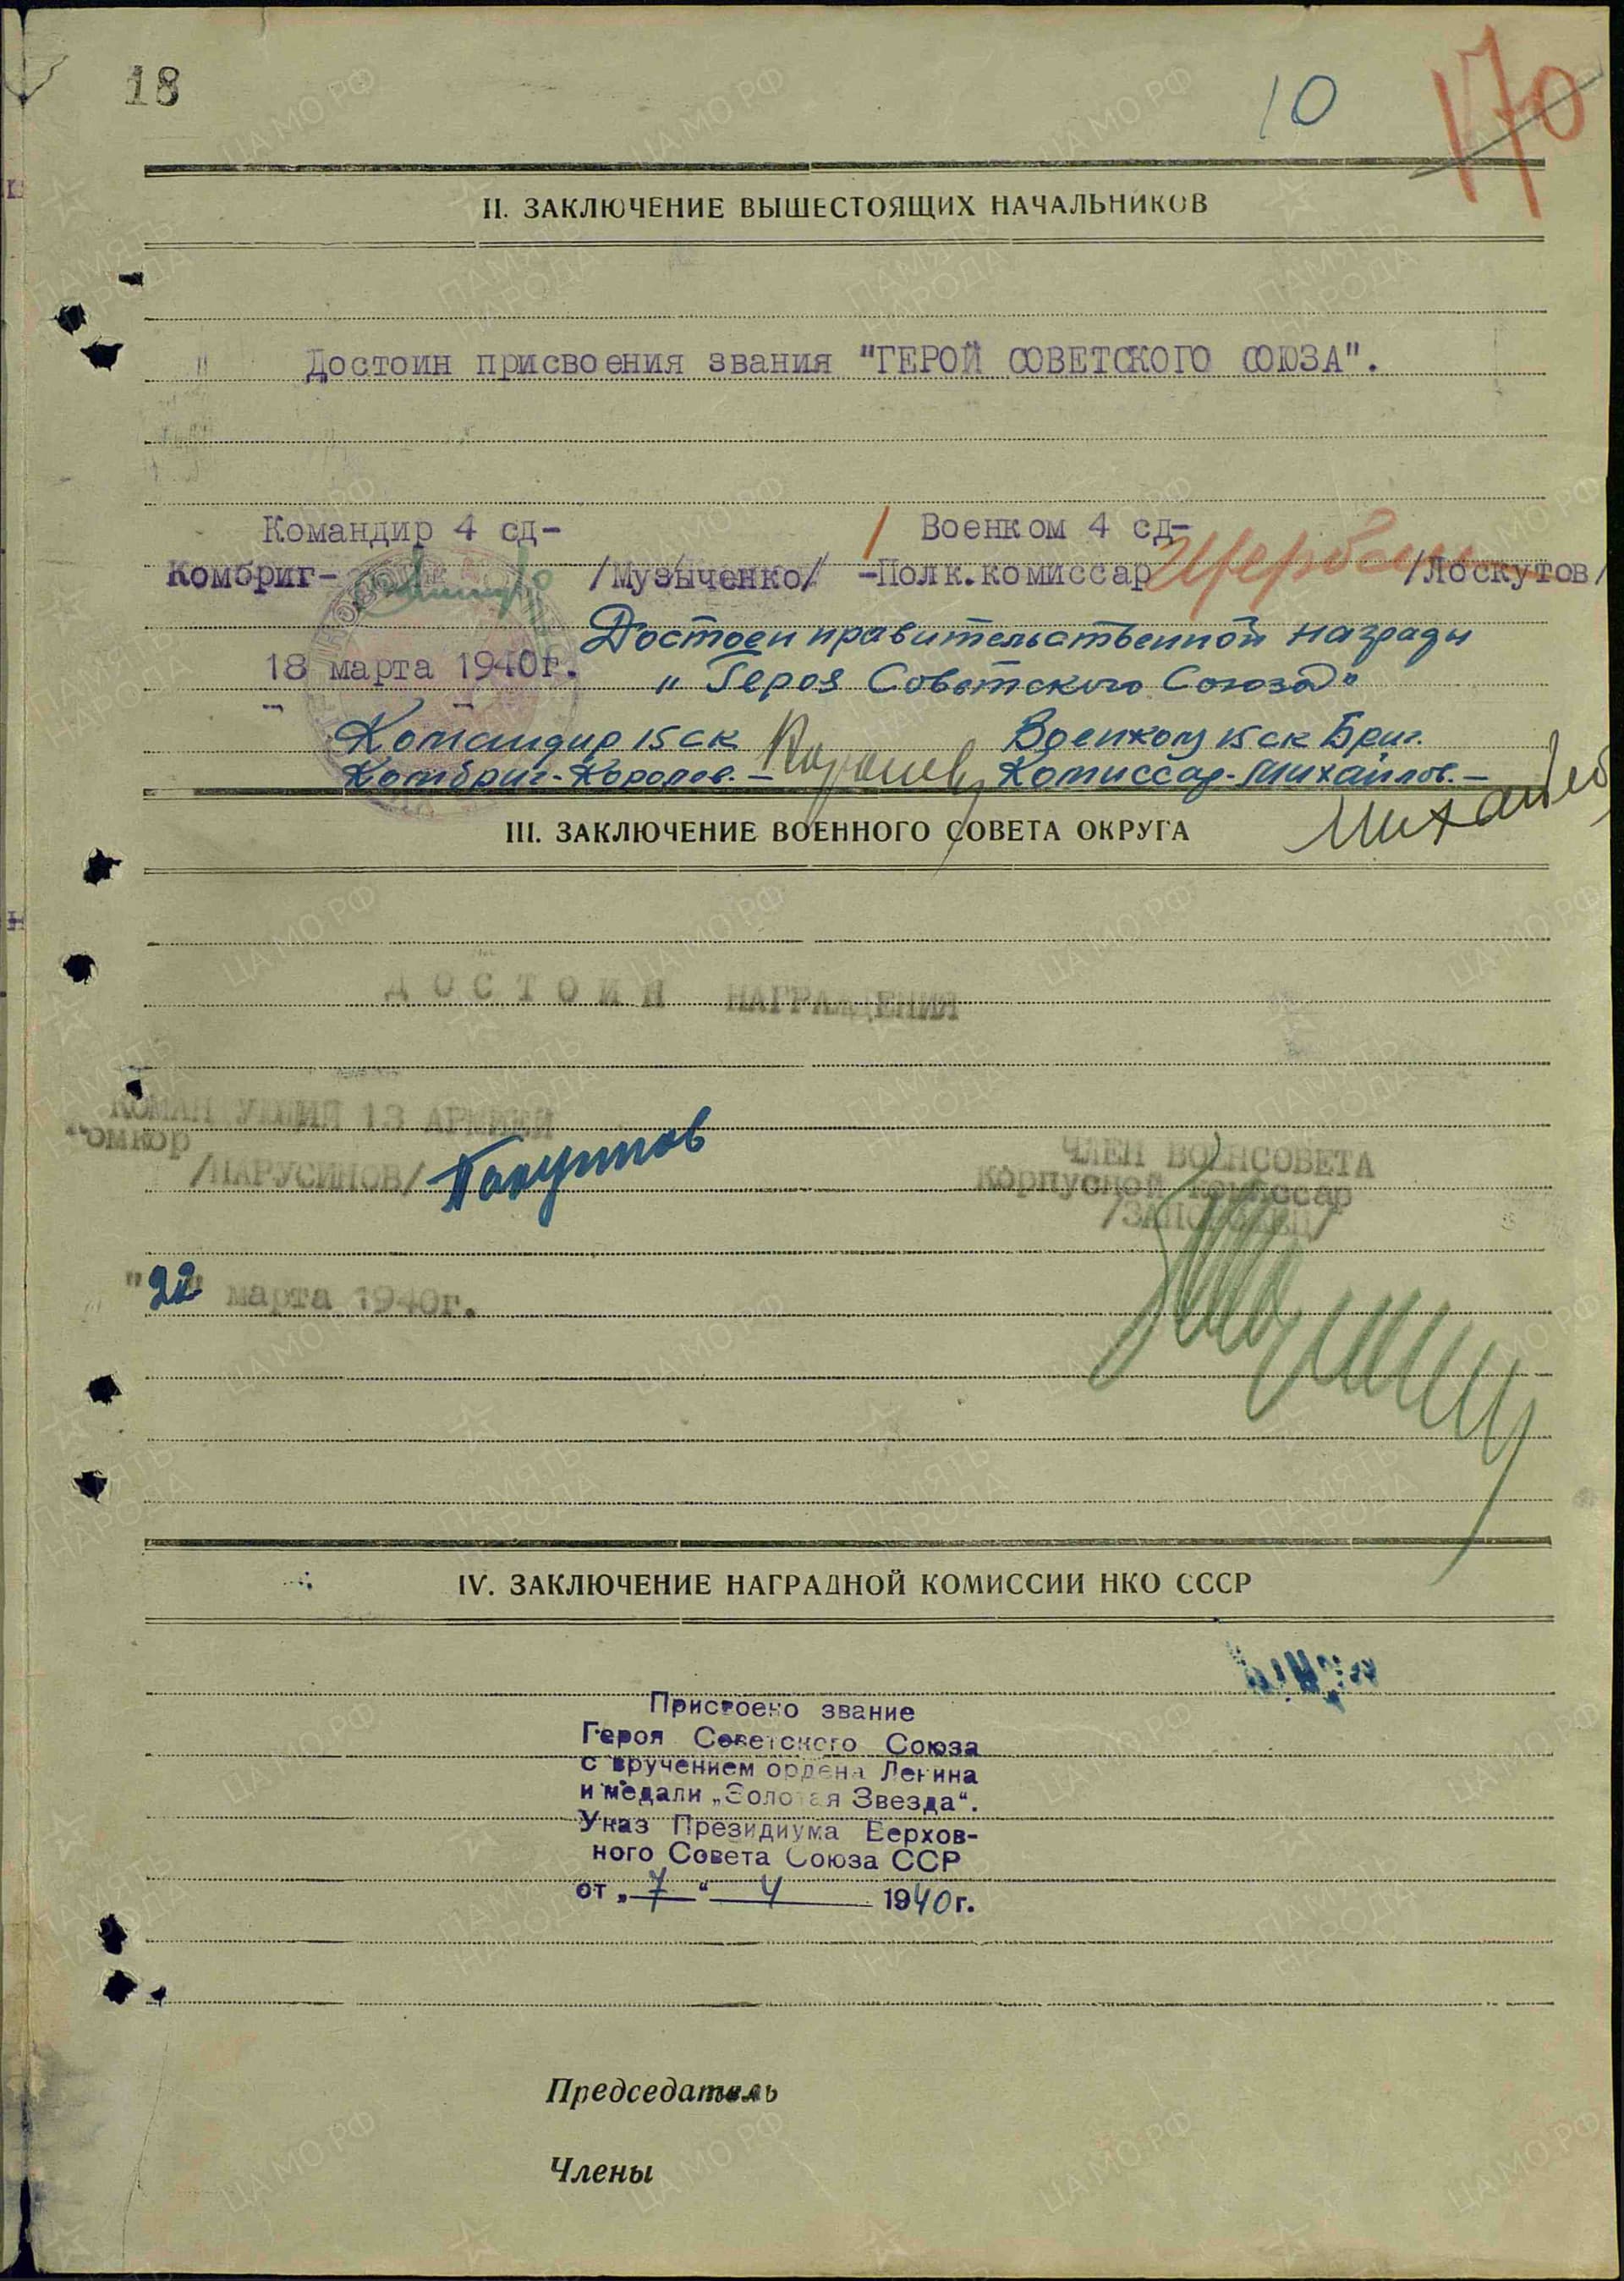 18
10
170
II. ЗАКЛЮЧЕНИЕ ВЫШЕСТОЯЩИХ НАЧАЛЬНИКОВ
Достоин присвоения звания "ГЕРОЙ СОВЕТСКОГО СОЮЗА".
Командир 4 сд- Военком 4 сд-
Комбриг- /Музыченко/ -Полк.комиссар /Лоскутов/
Достоен правительственной награды
18 марта 1940г. „Героя Советского Союза"
Командир 15 ск Военком 15 ск Бриг.
Комбриг-Королев.- Комиссар-Михайлов.-
Михайлов
III. ЗАКЛЮЧЕНИЕ ВОЕННОГО СОВЕТА ОКРУГА
ДОСТОИН НАГРАЖДЕНИЯ
13 АРМИЕЙ
Комкор
/ПАРУСИНОВ/
ЧЛЕН ВОЕНСОВЕТА
Корпусной комиссар
/ЗАПОРОЖЕЦ/
"22" марта 1940г.
IV. ЗАКЛЮЧЕНИЕ НАГРАДНОЙ КОМИССИИ НКО СССР
Присвоено звание
Героя Советского Союза
с вручением ордена Ленина
и медали „Золотая Звезда".
Указ Президиума Верхов-
ного Совета Союза ССР
от „7" 4 1940г.
Председатель
Члены
ЦА МО РФ
ПАМЯТЬ НАРОДА